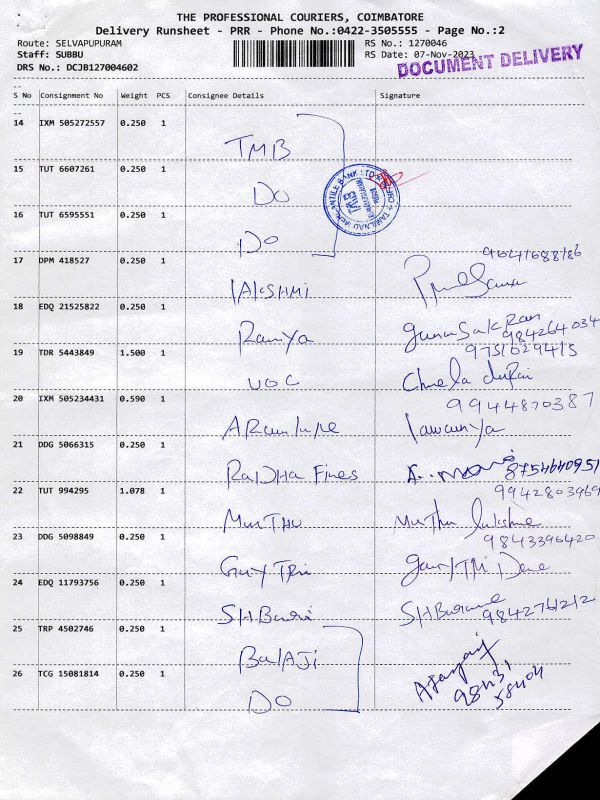 THE PROFESSIONAL COURIERS, COIMBATORE
Delivery Runsheet - PRR - Phone No.:0422-3505555 - Page No.:2
Route: SELVAPUPURAM RS No.: 1270046
Staff: SUBBU RS Date: 07-Nov-2023
DRS No.: DCJB127004602 DOCUMENT DELIVERY
S No Consignment No Weight PCS Consignee Details Signature
14 IXM 505272557 0.250 1 TMB
15 TUT 6607261 0.250 1 DO
16 TUT 6595551 0.250 1 DO
17 DPM 418527 0.250 1 LAKSHMI
18 EDQ 21525822 0.250 1 Ramya
984264034
19 TDR 5443849 1.500 1 VOC
9751029415
20 IXM 505234431 0.590 1
9944870387
Lavanya
21 DDG 5066315 0.250 1 RaDHA Fines
8754640651
22 TUT 994295 1.078 1 MUTHU
9942803969
Muthu lakshmi
23 DDG 5098849 0.250 1
9843396420
24 EDQ 11793756 0.250 1
9842761212
25 TRP 4502746 0.250 1 BalAJi
26 TCG 15081814 0.250 1 DO